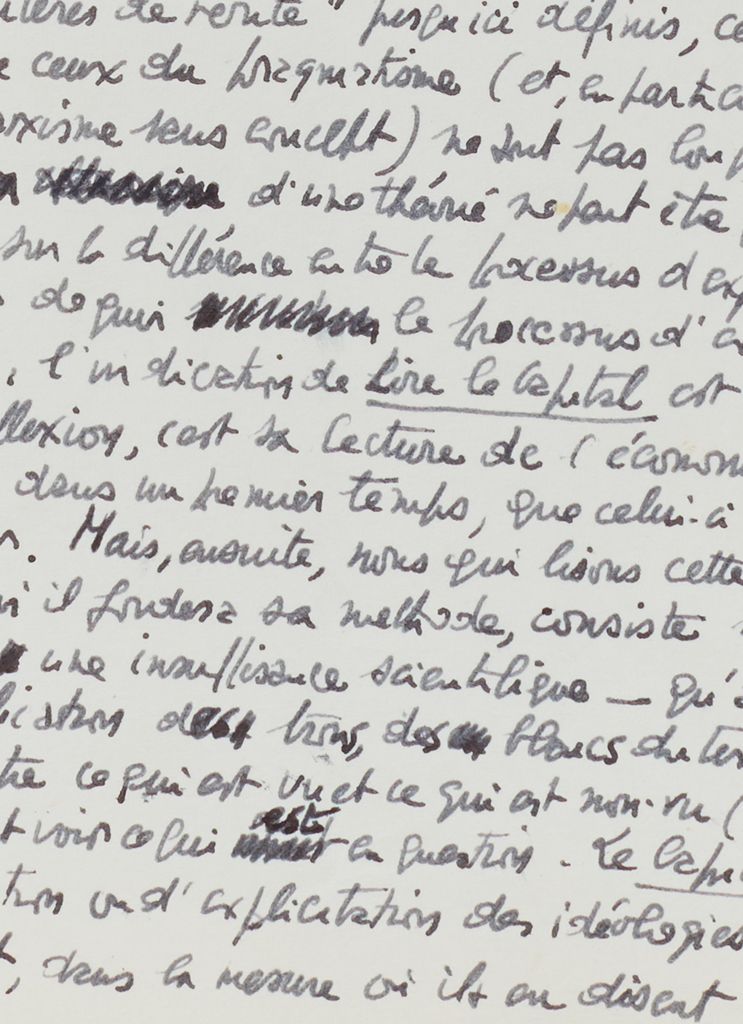 de vérité" jusqu'ici définis, ce
ceux du pragmatisme (et, en partic
sans concept) ne sont pas
d'une théorie ne peut être
sur la différence entre le processus d'exp
de quoi le processus d'
, l'indication de Lire le Capital est
flexion, c'est sa lecture de l'économ
dans un premier temps, que celui-ci
. Mais, ensuite, nous qui lisons cette
il fondera sa méthode, consiste
une insuffisance scientifique — qu'
lication des trous, des blancs du tex
tre ce qui est vu et ce qui est non-vu (
t voir ce qui est en question. Le Capi
tion ou d'explicitation des idéologies
t, dans la mesure où ils en disent